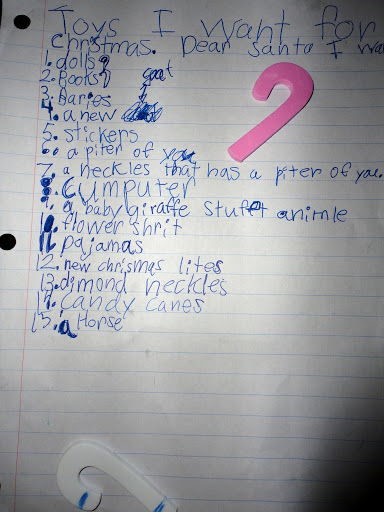 Toys I want for
Christmas. Dear Santa I wa
1. dolls
2. Books
3. Baries
coat
4. a new
5. stickers
6. a piter of you
7. a neckles that has a piter of you.
8. cumputer
9. a baby giraffe stufet animle
10. flower shrit
11. pajamas
12. new chrismas lites
13. dimond neckles
14. candy canes
15. a Horse